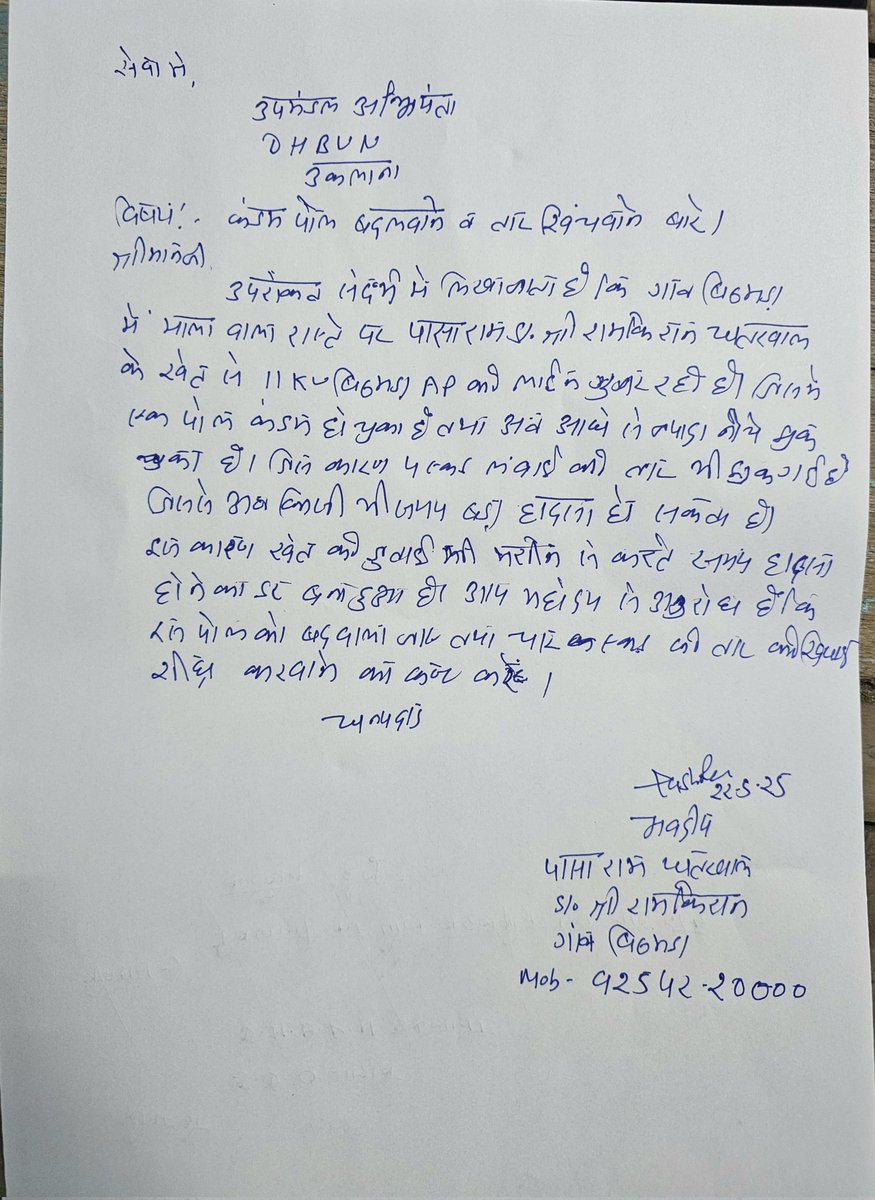 सेवा मे,
उपमंडल अभियंता
DHBVN
उकलाना
विषय:- कंडम पोल बदलवाने व तार खिंचवाने बारे।
श्रीमानजी,
उपरोक्त संदर्भ में लिखा जाता है कि गांव बिठमड़ा
में वाला रास्ते पर पासाराम S/o श्री रामकिशन घतरवाल
के खेत से 11KV बिठमड़ा AP की लाईन गुजर रही है। जिसमे
एक पोल कंडम हो चुका है तथा अब आधे से ज्यादा नीचे झुक
चुका है। जिस कारण 4 एकड लंबाई की तार भी झुक गई है
जिससे अब किसी भी समय बड़ा हादसा हो सकता है।
इस कारण खेत की जुताई भी मशीन से करते समय हादसा
होने का डर बना हुआ है। आप महोदय से अनुरोध है कि
इस पोल को बदवाया जाए तथा चार एकड की तार की खिंचाई
शीघ्र करवाने का कष्ट करें।
धन्यवाद
22-5-25
भवदीय
पासा राम घतरवाल
S/o श्री रामकिशन
गांव बिठमड़ा
Mob- 92542-20000